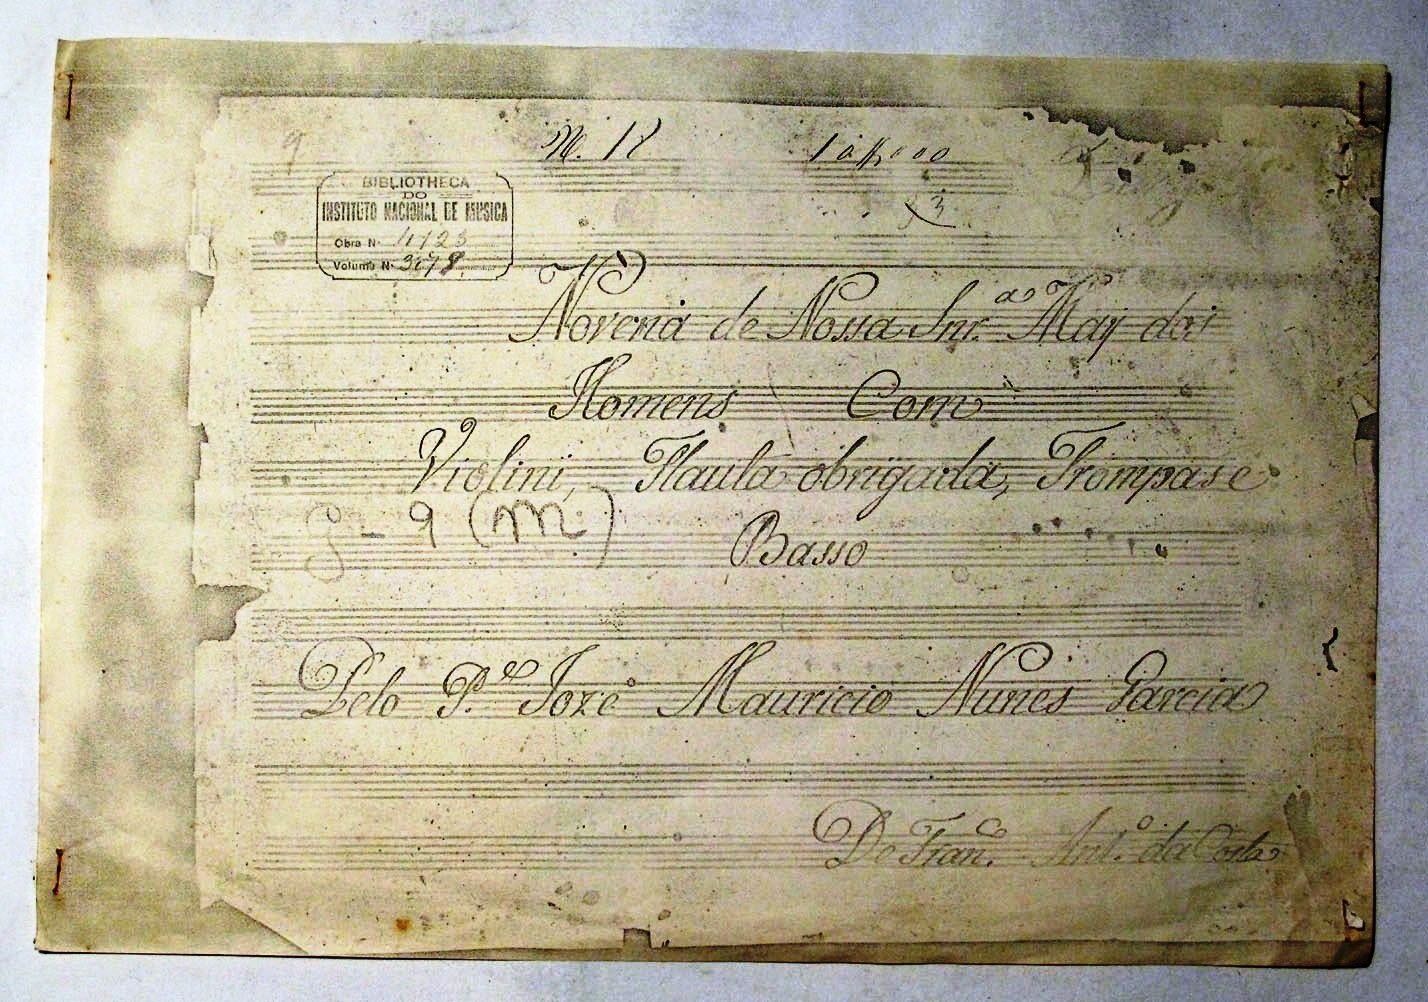 N. 18
BIBLIOTHECA
DO
INSTITUTO NACIONAL DE MUSICA
Obra N.
Volume N.
3
Novena de Nossa Snr.ª May dos
Homens Com
Violini, Flauta obrigada, Trompas e
9 (m)
Basso
Pelo P.e Joze Mauricio Nunes Garcia
De Fran.co Ant.o da Costa